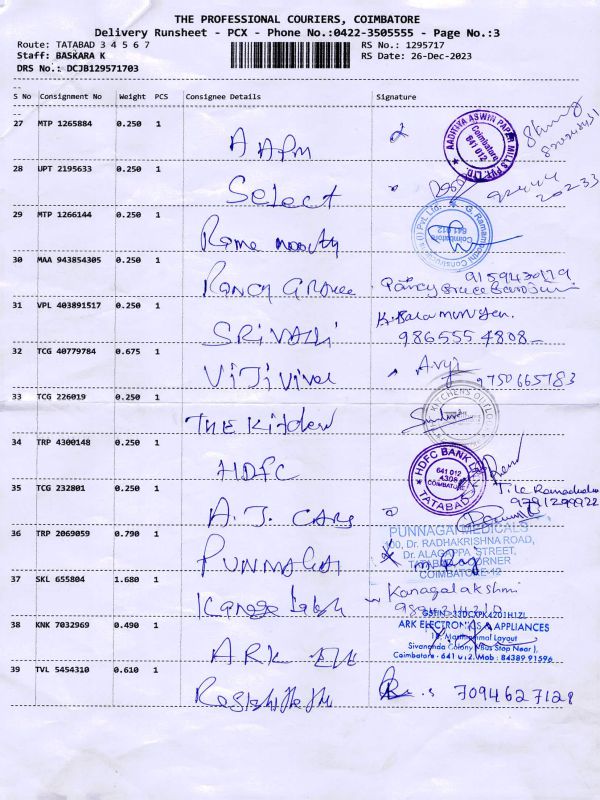 THE PROFESSIONAL COURIERS, COIMBATORE
Delivery Runsheet - PCX - Phone No.:0422-3505555 - Page No.:3
Route: TATABAD 3 4 5 6 7 RS No.: 1295717
Staff: BASKARA K RS Date: 26-Dec-2023
DRS No.: DCJB129571703
S No Consignment No Weight PCS Consignee Details Signature
27 MTP 1265884 0.250 1
AADITIYA ASWIN PAPER MILLS PVT. LTD.
Coimbatore
641 012
AAPM
28 UPT 2195633 0.250 1
Select
29 MTP 1266144 0.250 1
Rama moorthy
G. Ramamoorthi Constructions (I) Pvt. Ltd.
Coimbatore
641 012
30 MAA 943854305 0.250 1
9159430179
31 VPL 403891517 0.250 1
SRIVALLI
986555 4808
32 TCG 40779784 0.675 1
9750665783
33 TCG 226019 0.250 1
THE Kitchen
KITCHENS
34 TRP 4300148 0.250 1
HDFC
HDFC BANK LTD
641 012
A308
COIMBATORE
TATABAD
35 TCG 232801 0.250 1
A.J. CARS
9791299922
36 TRP 2069059 0.790 1
PUNNAGAI
PUNNAGAI MEDICALS
100, Dr. RADHAKRISHNA ROAD,
Dr. ALAGAPPA STREET,
TATABAD CORNER
COIMBATORE-12
37 SKL 655804 1.680 1
Kanagalakshmi
38 KNK 7032969 0.490 1
ARK
ARK ELECTRONICS & APPLIANCES
Sivananda Colony (Bus Stop Near),
Coimbatore - 641 012. Mob : 84389 91596
39 TVL 5454310 0.610 1
7094627128